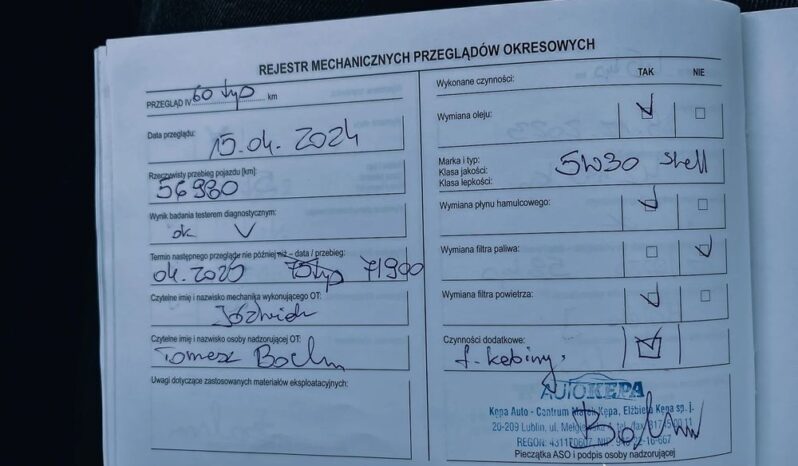 REJESTR MECHANICZNYCH PRZEGLĄDÓW OKRESOWYCH
PRZEGLĄD IV 60 tys km
Data przeglądu:
15.04.2024
Rzeczywisty przebieg pojazdu [km]:
56930
Wynik badania testerem diagnostycznym:
ok V
Termin następnego przeglądu nie później niż – data / przebieg:
04.2025 75tys 71900
Czytelne imię i nazwisko mechanika wykonującego OT:
Czytelne imię i nazwisko osoby nadzorującej OT:
Tomasz
Uwagi dotyczące zastosowanych materiałów eksploatacyjnych:
Wykonane czynności: TAK NIE
Wymiana oleju:
Marka i typ:
Klasa jakości:
Klasa lepkości:
5W30 Shell
Wymiana płynu hamulcowego:
Wymiana filtra paliwa:
Wymiana filtra powietrza:
Czynności dodatkowe:
f. kabiny,
AUTOKEPA
Kępa Auto - Centrum Marek Kępa, Elżbieta Kępa sp. j.
20-209 Lublin, ul.
REGON: NIP
Pieczątka ASO i podpis osoby nadzorującej